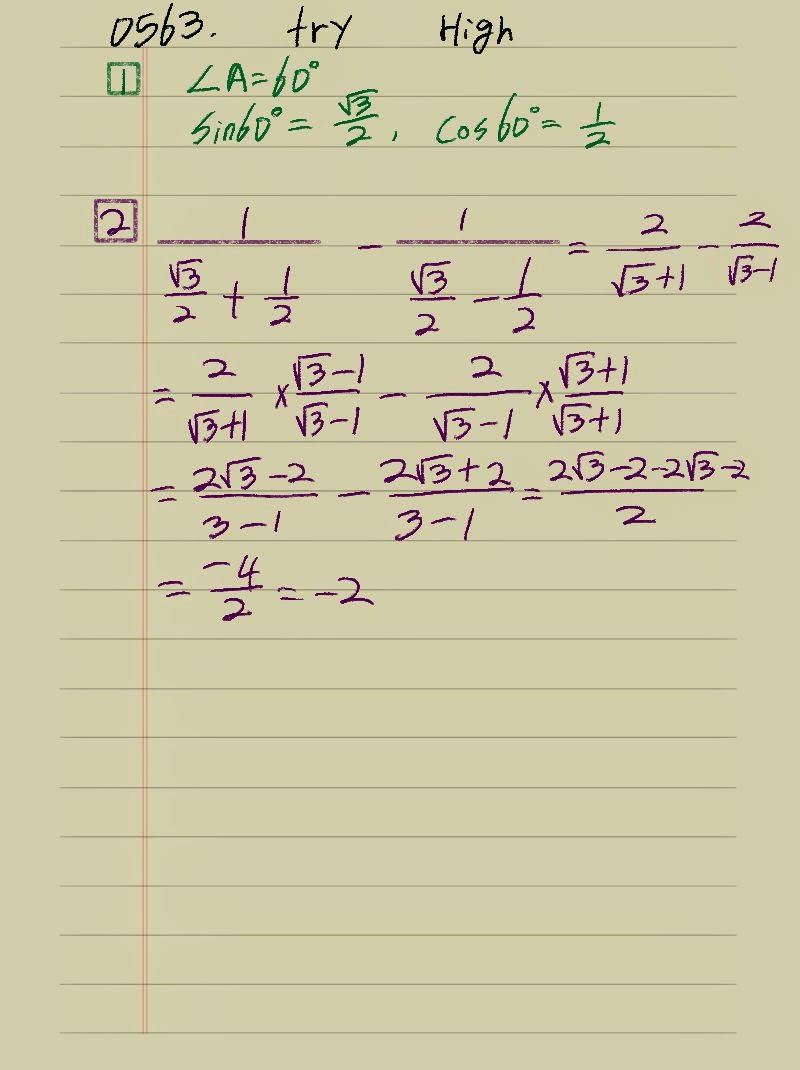 0563. try High
1 ∠A=60°
sin60°= √3/2, cos60°= 1/2
2 1/(√3/2 + 1/2) - 1/(√3/2 - 1/2) = 2/(√3+1) - 2/(√3-1)
= 2/(√3+1) × (√3-1)/(√3-1) - 2/(√3-1) × (√3+1)/(√3+1)
= (2√3-2)/(3-1) - (2√3+2)/(3-1) = (2√3-2-2√3-2)/2
= -4/2 = -2